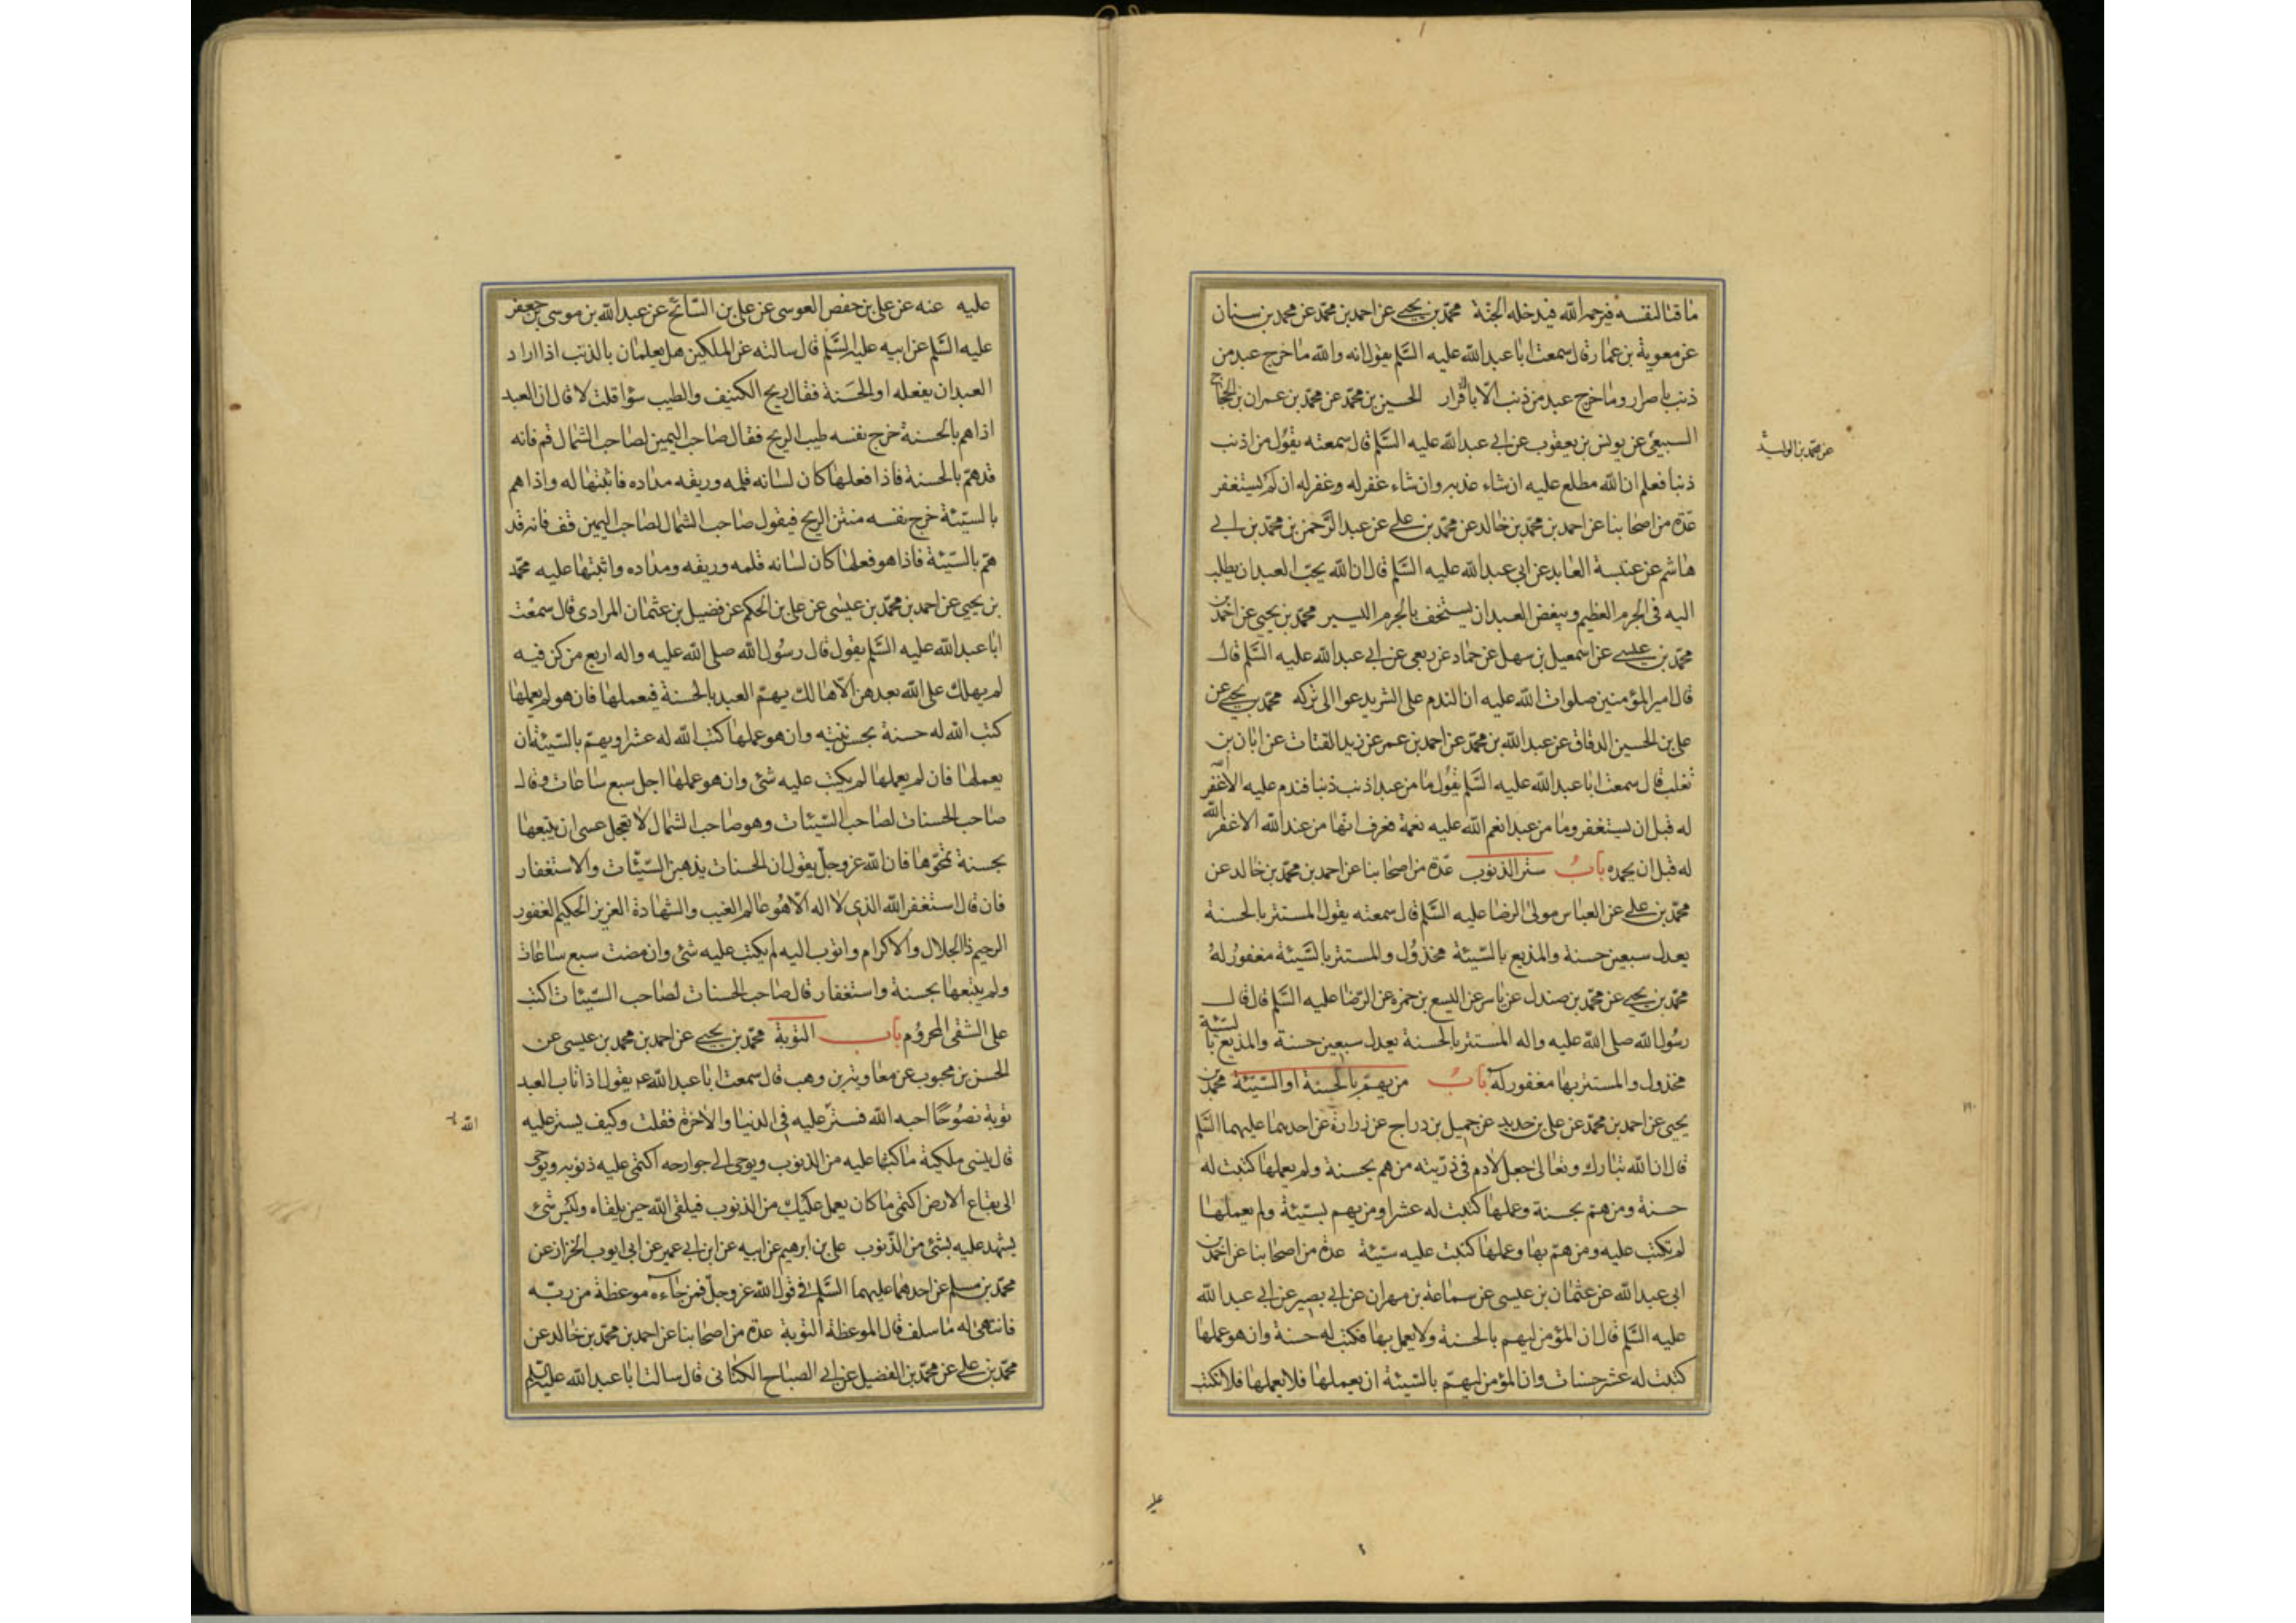 ماقتا لنفسه فيرحمه الله فيدخله الجنة محمد بن يحيى عن احمد بن محمد عن محمد بن سنان
عن معوية بن عمار قال سمعت ابا عبد الله عليه السلم يقول انه والله ما خرج عبد من
ذنب باصرار وما خرج عبد من ذنب الا باقرار الحسين بن محمد عن محمد بن عمران بن الحجاج
السبيعى عن يونس بن يعقوب عن ابى عبد الله عليه السلم قال سمعته يقول من اذنب
عن محمد بن الوليد
ذنبا فعلم ان الله مطلع عليه ان شاء عذبه وان شاء غفر له وغفر له ان لم يستغفر
عدة من اصحابنا عن احمد بن محمد بن خالد عن محمد بن على عن عبد الرحمن بن محمد بن ابى
هاشم عن عنبسة العابد عن ابى عبد الله عليه السلم قال ان الله يحب العبد ان يطلب
اليه فى الجرم العظيم ويبغض العبد ان يستخف بالجرم اليسير محمد بن يحيى عن احمد بن
محمد بن عيسى عن اسمعيل بن سهل عن حماد عن ربعى عن ابى عبد الله عليه السلم قال
قال امير المؤمنين صلوات الله عليه ان الندم على الشر يدعوا الى تركه محمد بن يحيى عن
على بن الحسين الدقاق عن عبد الله بن محمد عن احمد بن عمر عن زيد القتات عن ابان بن
تغلب قال سمعت ابا عبد الله عليه السلم يقول ما من عبد اذنب ذنبا فندم عليه الا غفر الله
له قبل ان يستغفر وما من عبد انعم الله عليه نعمة فعرف انها من عند الله الا غفر الله
له قبل ان يحمده باب ستر الذنوب عدة من اصحابنا عن احمد بن محمد بن خالد عن
محمد بن على عن العباس مولى الرضا عليه السلم قال سمعته يقول المستتر بالحسنة
يعدل سبعين حسنة والمذيع بالسيئة مخذول والمستتر بالسيئة مغفور له
محمد بن يحيى عن محمد بن صندل عن ياسر عن اليسع بن حمزة عن الرضا عليه السلم قال قال
رسول الله صلى الله عليه واله المستتر بالحسنة يعدل سبعين حسنة والمذيع بالسيئة
مخذول والمستتر بها مغفور له باب من يهم بالحسنة او السيئة محمد بن
يحيى عن احمد بن محمد عن على بن حديد عن جميل بن دراج عن زرارة عن احدهما عليهما السلم
قال ان الله تبارك وتعالى جعل لادم فى ذريته من هم بحسنة ولم يعملها كتبت له
حسنة ومن هم بحسنة وعملها كتبت له عشرا ومن يهم بسيئة ولم يعملها
لم تكتب عليه ومن هم بها وعملها كتبت عليه سيئة عدة من اصحابنا عن احمد بن
ابى عبد الله عن عثمان بن عيسى عن سماعة بن مهران عن ابى بصير عن ابى عبد الله
عليه السلم قال ان المؤمن ليهم بالحسنة ولا يعمل بها فكتب له حسنة وان هو عملها
كتبت له عشر حسنات وان المؤمن ليهم بالسيئة ان يعملها فلا يعملها فلا تكتب
عليه
عليه عنه عن على بن حفص العوسى عن على بن السائح عن عبد الله بن موسى بن جعفر
عليه السلم عن ابيه عليه السلم قال سالته عن الملكين هل يعلمان بالذنب اذا اراد
العبد ان يفعله او الحسنة فقال ريح الكنيف والطيب سؤا قلت لا قال ان العبد
اذا هم بالحسنة خرج نفسه طيب الريح فقال صاحب اليمين لصاحب الشمال قم فانه
قد هم بالحسنة فاذا فعلها كان لسانه قلمه وريقه مداده فاثبتها له واذا هم
بالسيئة خرج نفسه منتن الريح فيقول صاحب الشمال لصاحب اليمين قف فانه قد
هم بالسيئة فاذا هو فعلها كان لسانه قلمه وريقه ومداده واثبتها عليه محمد
بن يحيى عن احمد بن محمد بن عيسى عن على بن الحكم عن فضيل بن عثمان المرادى قال سمعت
ابا عبد الله عليه السلم يقول قال رسول الله صلى الله عليه واله اربع من كن فيه
لم يهلك على الله بعدهن الا هالك يهم العبد بالحسنة فيعملها فان هو لم يعملها
كتب الله له حسنة بحسن نيته وان هو عملها كتب الله له عشرا ويهم بالسيئة ان
يعملها فان لم يعملها لم يكتب عليه شئ وان هو عملها اجل سبع ساعات وقال
صاحب الحسنات لصاحب السيئات وهو صاحب الشمال لا تعجل عسى ان يتبعها
بحسنة تمحوها فان الله عز وجل يقول ان الحسنات يذهبن السيئات والاستغفار
فان قال استغفر الله الذى لا اله الا هو عالم الغيب والشهادة العزيز الحكيم الغفور
الرحيم ذا الجلال والاكرام واتوب اليه لم يكتب عليه شئ وان مضت سبع ساعات
ولم يتبعها بحسنة واستغفار قال صاحب الحسنات لصاحب السيئات اكتب
على الشقى المحروم باب التوبة محمد بن يحيى عن احمد بن محمد بن عيسى عن
الحسن بن محبوب عن معاوية بن وهب قال سمعت ابا عبد الله ع يقول اذا تاب العبد
توبة نصوحا احبه الله فستر عليه فى الدنيا والاخرة فقلت وكيف يستر عليه
الله
قال ينسى ملكيه ما كتبا عليه من الذنوب ويوحى الى جوارحه اكتمى عليه ذنوبه ويوحى
الى بقاع الارض اكتمى ما كان يعمل عليك من الذنوب فيلقى الله حين يلقاه وليس شئ
يشهد عليه بشئ من الذنوب على بن ابرهيم عن ابيه عن ابن ابى عمير عن ابى ايوب الخزاز عن
محمد بن مسلم عن احدهما عليهما السلم فى قول الله عز وجل فمن جاءه موعظة من ربه
فانتهى له ما سلف قال الموعظة التوبة عدة من اصحابنا عن احمد بن محمد بن خالد عن
محمد بن على عن محمد بن الفضيل عن ابى الصباح الكنانى قال سالت ابا عبد الله عليه السلم